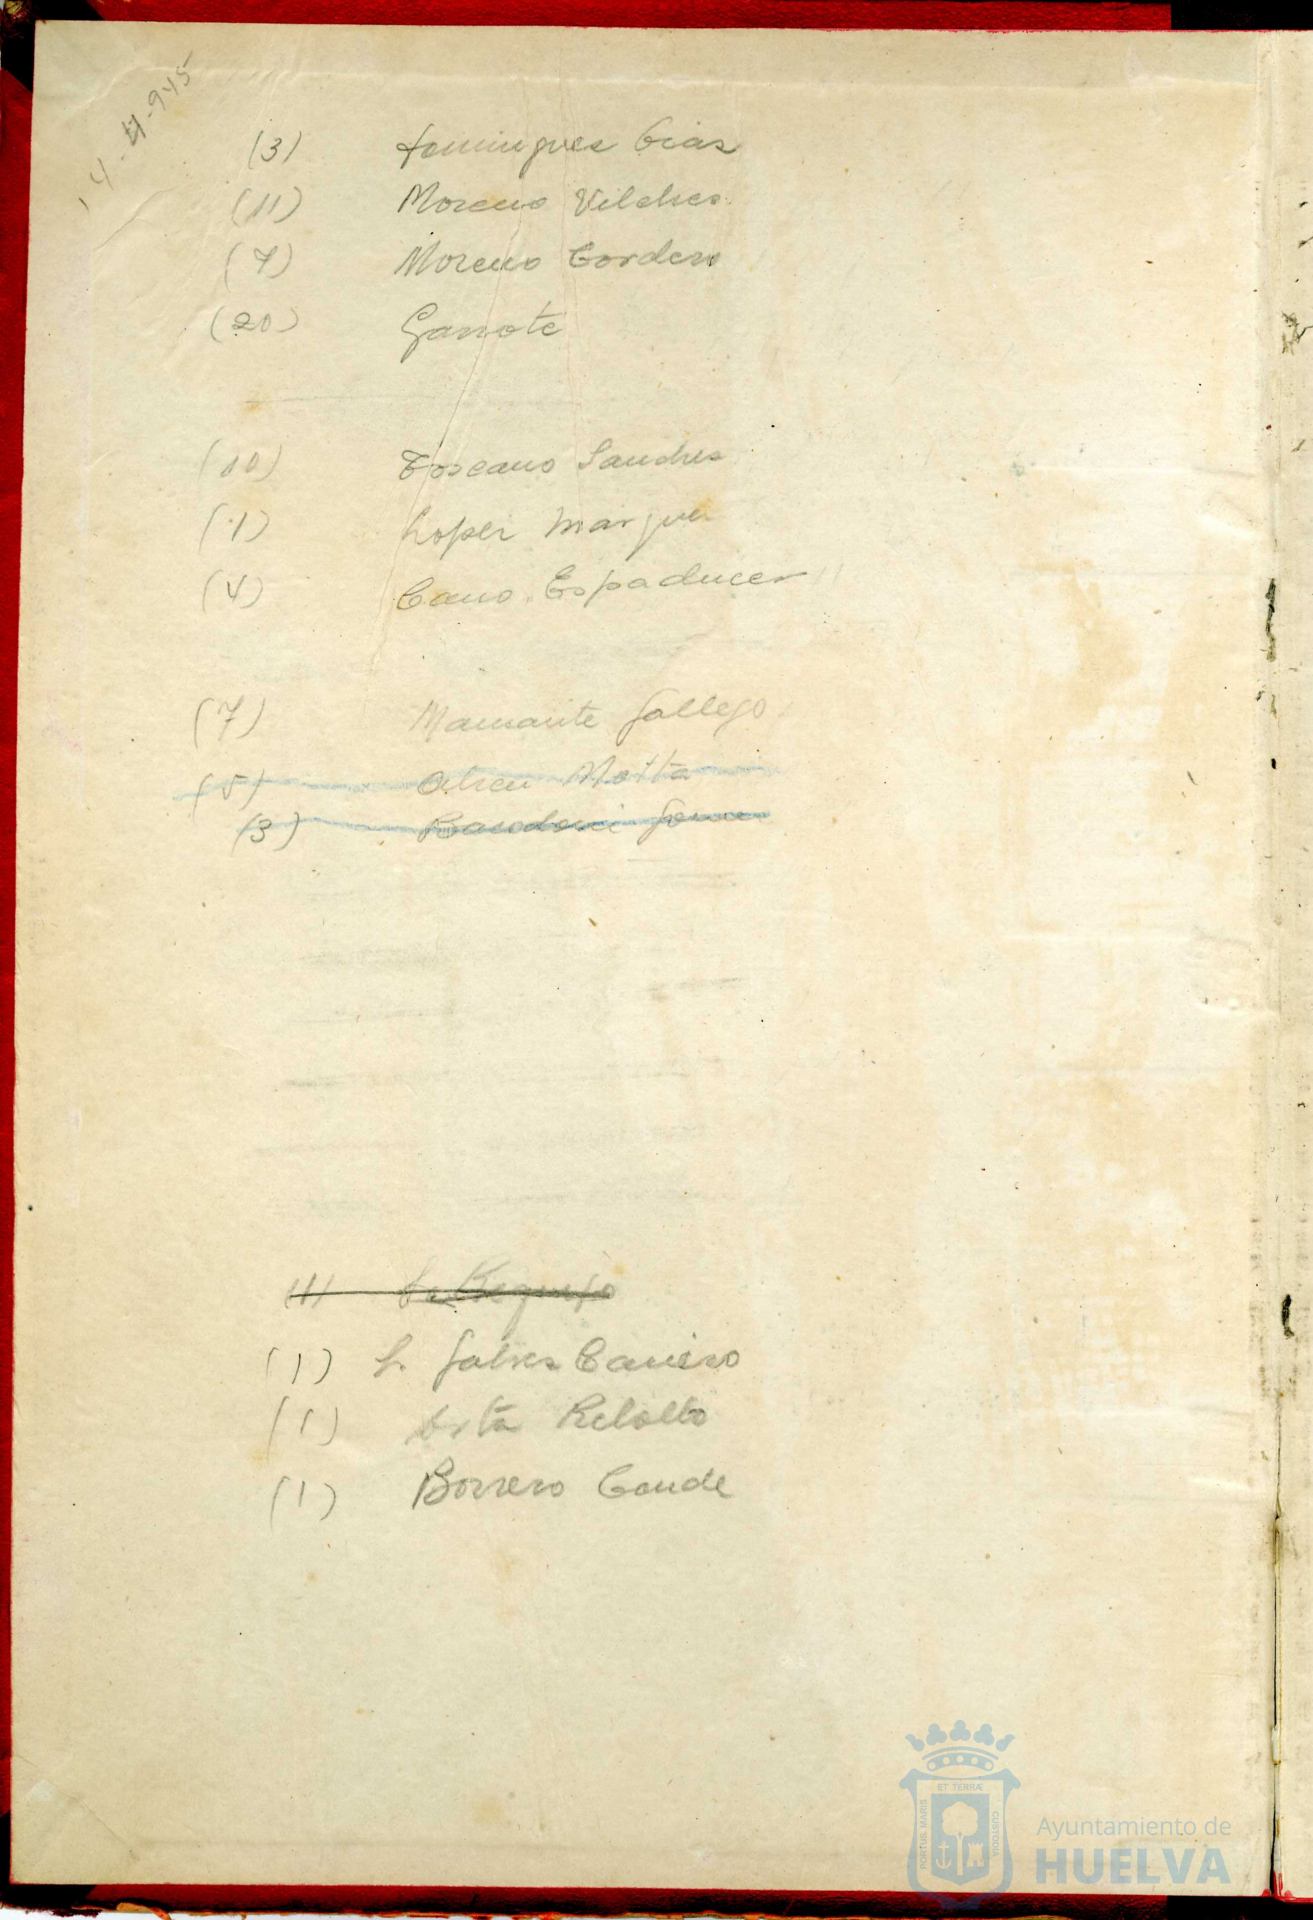 14-4-945
(3) Domingues Cias
(11) Moreno Vilches
(7) Moreno Cordero
(20) Garrote
(10) Toscano Sanches
(1) Lopez Marques
(4) Cano Espaducer
(7) Mamante Gallego
(5) Abreu Motta
(3)
(1) Requejo
(1) L. Galvez Caniero
(1) Orta Rebollo
(1) Borrero Conde
ET TERRÆ
PORTUS MARIS
CUSTODIA
Ayuntamiento de
HUELVA